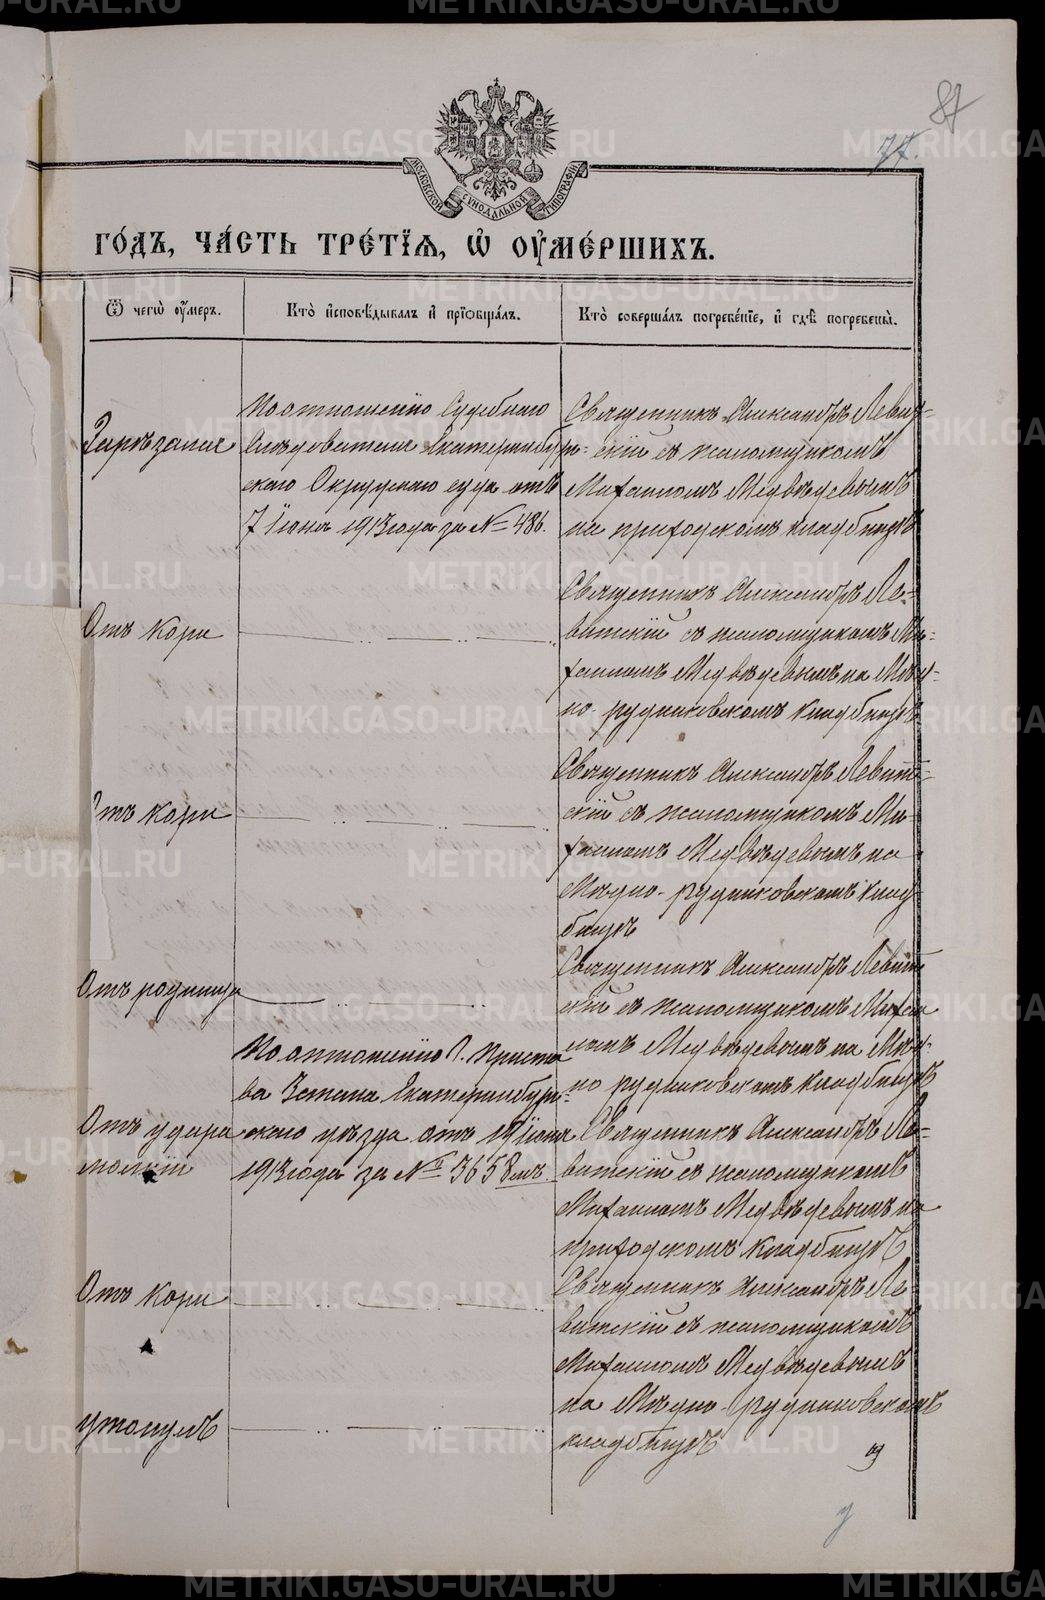 87
77.
МОСКОВСКОЙ СѴНОДАЛЬНОЙ ТИПОГРАФІИ
ГО́ДЪ, ЧА́СТЬ ТРЕ́ТІѦ, Ѡ҆ ОУ҆МЕ́РШИХЪ.
Ѿ чегѡ̀ оу҆́меръ.
Кто̀ и҆сповѣ́дывалъ и҆ прїѡбща́лъ.
Кто̀ соверша́лъ погребе́нїе, и҆ гдѣ̀ погребены̀.
Зарѣзался
По отношенію Судебнаго
Слѣдователя Екатеринбург-
скаго Окружнаго суда отъ
7 Іюня 1913 года за № 486.
Священникъ Александръ Левит-
скій съ псаломщикомъ
Михаиломъ Медвѣдевымъ
на приходскомъ кладбищѣ
Отъ кори
Священникъ Александръ Ле-
витскій съ псаломщикомъ Ми-
хаиломъ Медвѣдевымъ на Мѣд-
но-рудниковскомъ кладбищѣ
Отъ кори
Священникъ Александръ Левит-
скій съ псаломщикомъ Ми-
хаиломъ Медвѣдевымъ на
Мѣдно-рудниковскомъ клад-
бищѣ
Отъ родимца
Священникъ Александръ Левит
скій съ псаломщикомъ Михаи
ломъ Медвѣдевымъ на Мѣд-
но рудниковскомъ кладбищѣ
Отъ удара
молніи
По отношенію Г. Приста
ва Заназ Екатеринбург-
скаго уѣзда отъ 19 Іюня
1913 года за № 3658мъ.
Священникъ Александръ Ле-
витскій съ псаломщикомъ
Михаиломъ Медвѣдевымъ на
приходскомъ кладбищѣ
Отъ кори
Священникъ Александръ Ле-
витскій съ псаломщикомъ
Михаиломъ Медвѣдевымъ
на Мѣдно-рудниковскомъ
кладбищѣ
утонулъ
METRIKI.GASO-URAL.RU